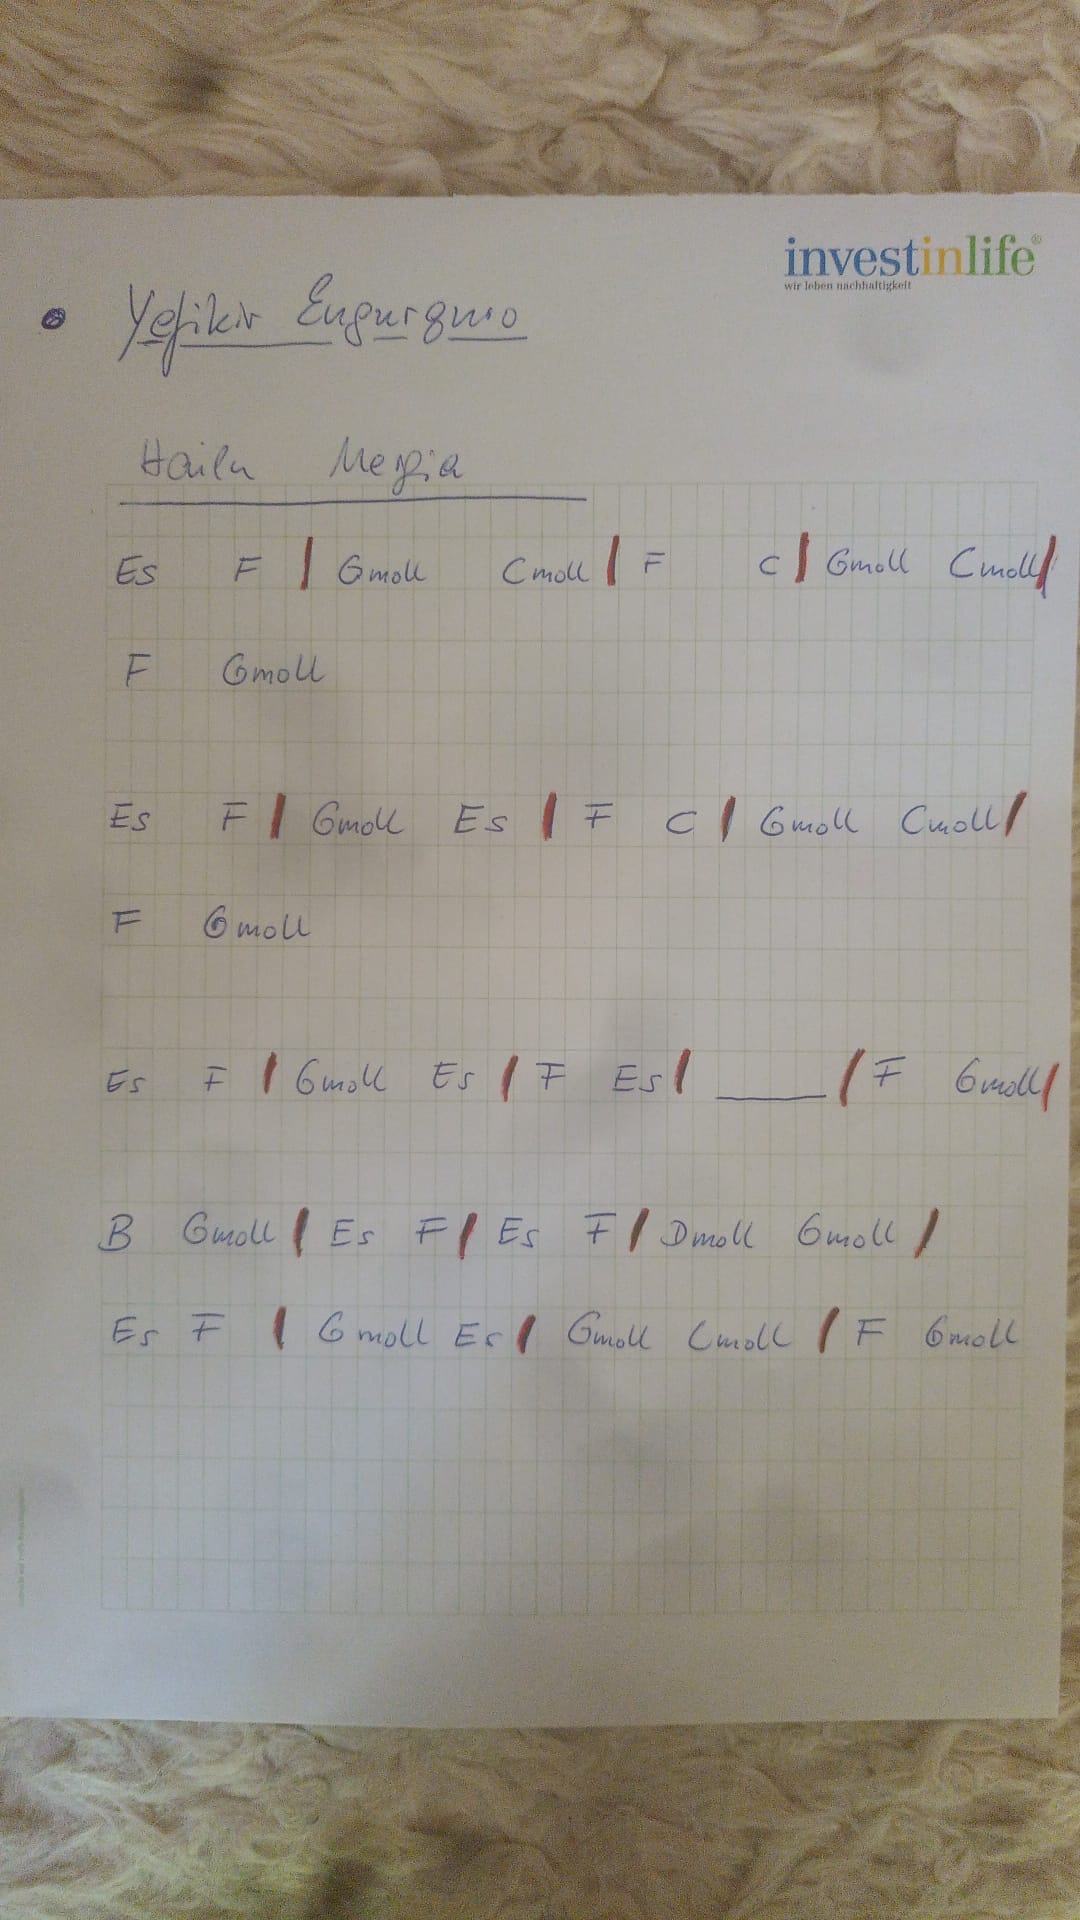 investinlife®
wir leben nachhaltigkeit
Yefikir Engurguro
Hailu Mergia
Es F | Gmoll Cmoll | F C | Gmoll Cmoll |
F Gmoll
Es F | Gmoll Es | F C | Gmoll Cmoll |
F Gmoll
Es F | Gmoll Es | F Es | ____ | F Gmoll |
B Gmoll | Es F | Es F | Dmoll Gmoll |
Es F | Gmoll Es | Gmoll Cmoll | F Gmoll